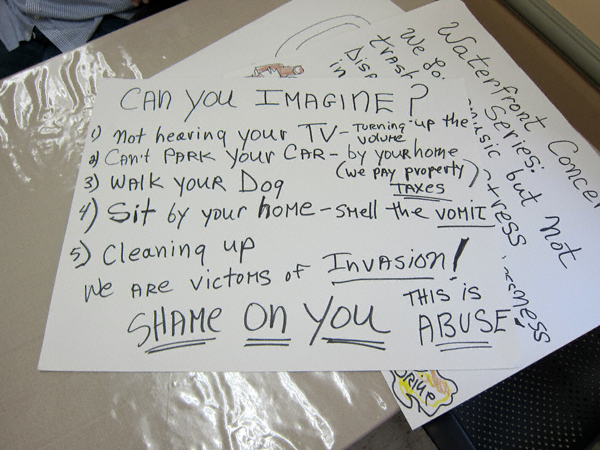 CAN YOU IMAGINE?
1) Not hearing your TV - TURNING up the volume
2) CAN'T PARK YOUR CAR - by your home
(We pay property TAXES)
3) WALK YOUR DOG
4) Sit by your home - smell the VOMIT
5) Cleaning up
We ARE VICTOMS OF INVASION!
SHAME ON YOU THIS IS ABUSE!
Waterfront Concer
Series:
music but not
We lo
trash
in